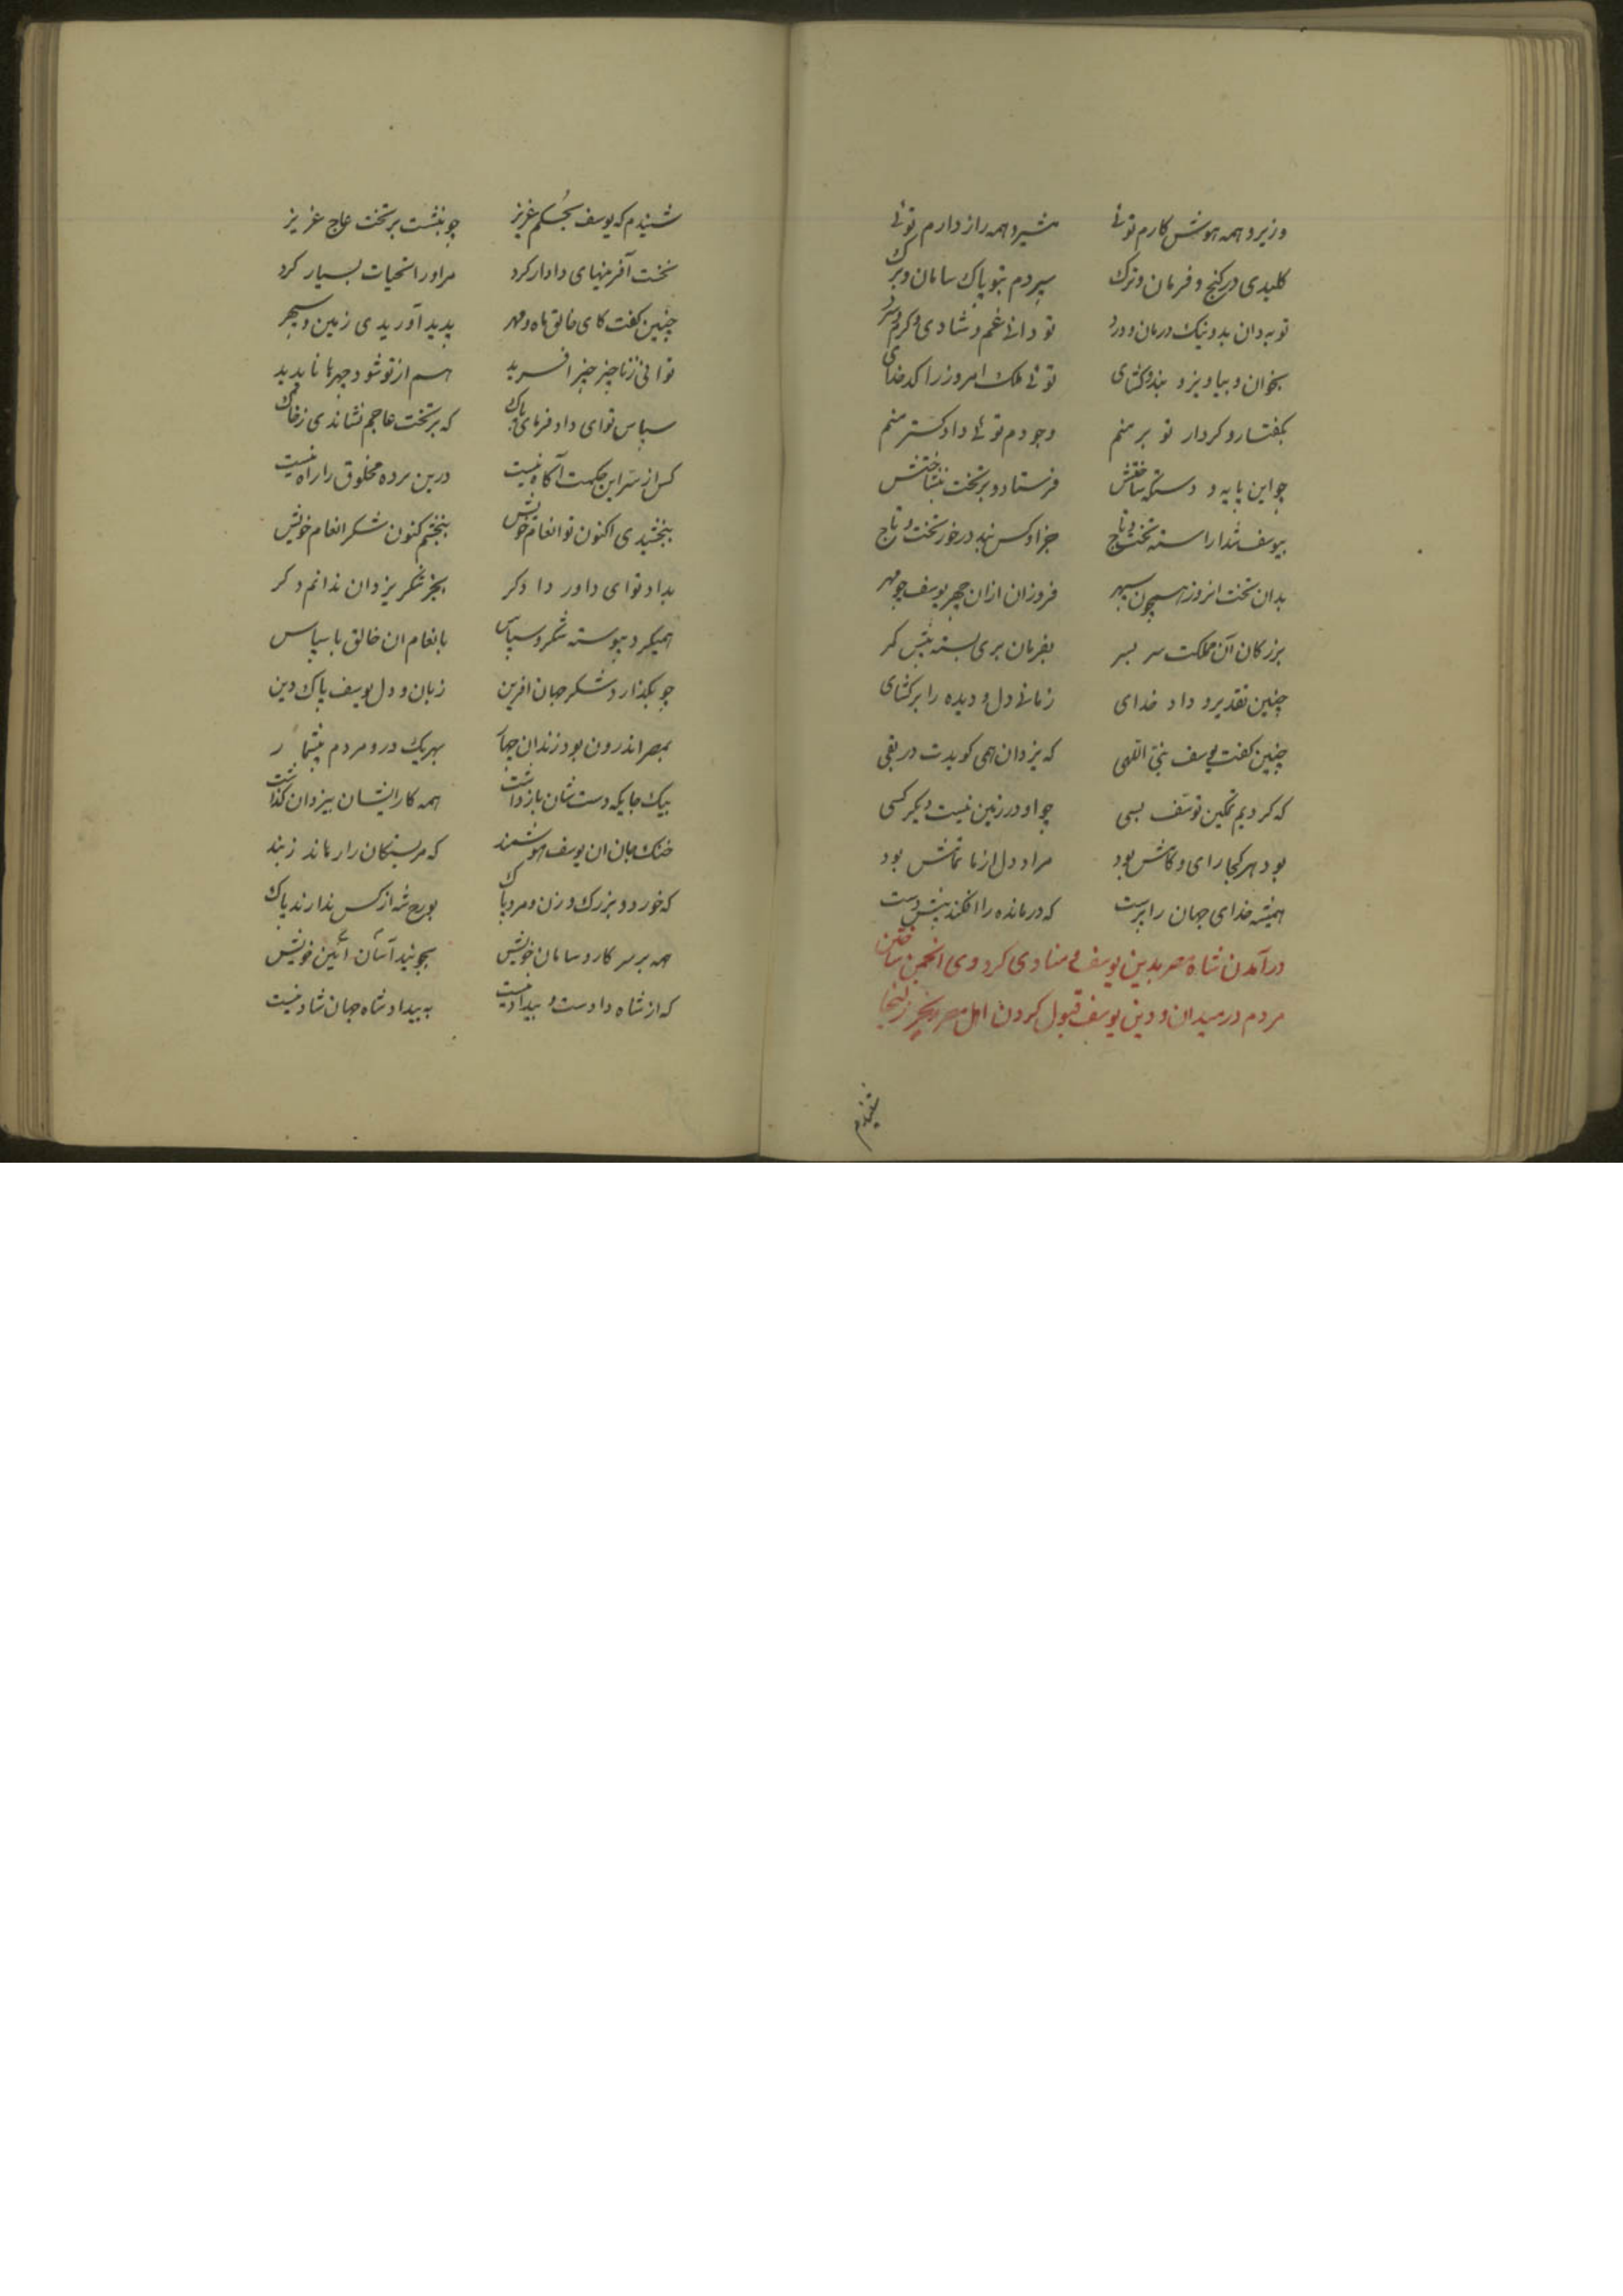 وزیر و همه هوشس کارم توئی مشیر و همه راز دارم توئی
کلیدی در کنج و فرمان و ترک سپردم بتو پاک سامان و برک
تو به دان بد و نیک درمان و درد تو دانی غم و شادی و کرم و سرد
بخوان و بیاویز و بند و کشای توئی ملک امروز را کدخدای
بکفتار و کردار تو بر منم وجودم توئی دادکستر منم
چو این پایه و دستکه ساختش فرستاد و بر تخت بنشاختش
بیوسف شد اراسته تخت و تاج جز او کس نبد درخور تخت و تاج
بدان تخت انروز همچون سپهر فروزان ازان چهر یوسف چو مهر
بزرکان آن مملکت سر بسر بفرمان بری بسته پیشش کمر
چنین تقدیر و داد خدای زمانی دل و دیده را برکشای
چنین کفت یوسف نبی اللهی که یزدان همی کویدت در نقی
که کردیم تمکین یوسف بسی چو او در زمین نیست دیکر کسی
بود هر کجا رای و کامش بود مراد دل از ما تمامش بود
همیشه خدای جهان را پرست که درمانده را افکند پیش دست
درآمدن شاه مصر بدین یوسف و منادی کردن وی انجمن ساختن
مردم در میدان و دین یوسف قبول کردن اهل مصر بجز زلیخا
شنیدم
شنیدم که یوسف بحکم عزیز چو بنشست بر تخت عاج عزیز
نخست آفرینهای دادار کرد مر او را تحیات بسیار کرد
چنین کفت کای خالق ماه و مهر پدید آوریدی زمین و سپهر
توانی ز ناچیز چیز افرید هم از تو شود چیزها ناپدید
سپاس تو ای داد فرمای پاک که بر تخت عاجم نشاندی ز خاک
کس از سر این حکمت آکاه نیست درین پرده مخلوق را راه نیست
ببخشیدی اکنون تو انعام خویش ببخشم کنون شکر انعام خویش
بداد تو ای داور دادکر بجز شکر یزدان ندانم دکر
همیکرد پیوسته شکر و سپاس بانعام ان خالق با سپاس
چو بکذارد شکر جهان افرین زبان و دل یوسف پاک دین
بمصر اندرون بود زندان چهار بهر یک درو مردم بیشمار
بیک جایکه دست شان باز داشت همه کار ایشان بیزدان کذاشت
خنک جان ان یوسف هوشمند که مر بستکان را رهاند ز بند
که خورد و بزرک و زن و مرد پاک بورح شه از کس ندارند باک
همه بر سر کار و سامان خویش بجویند آسان آئین خویش
که از شاه دادست و بیداد نیست به بیداد شاه جهان شاد نیست